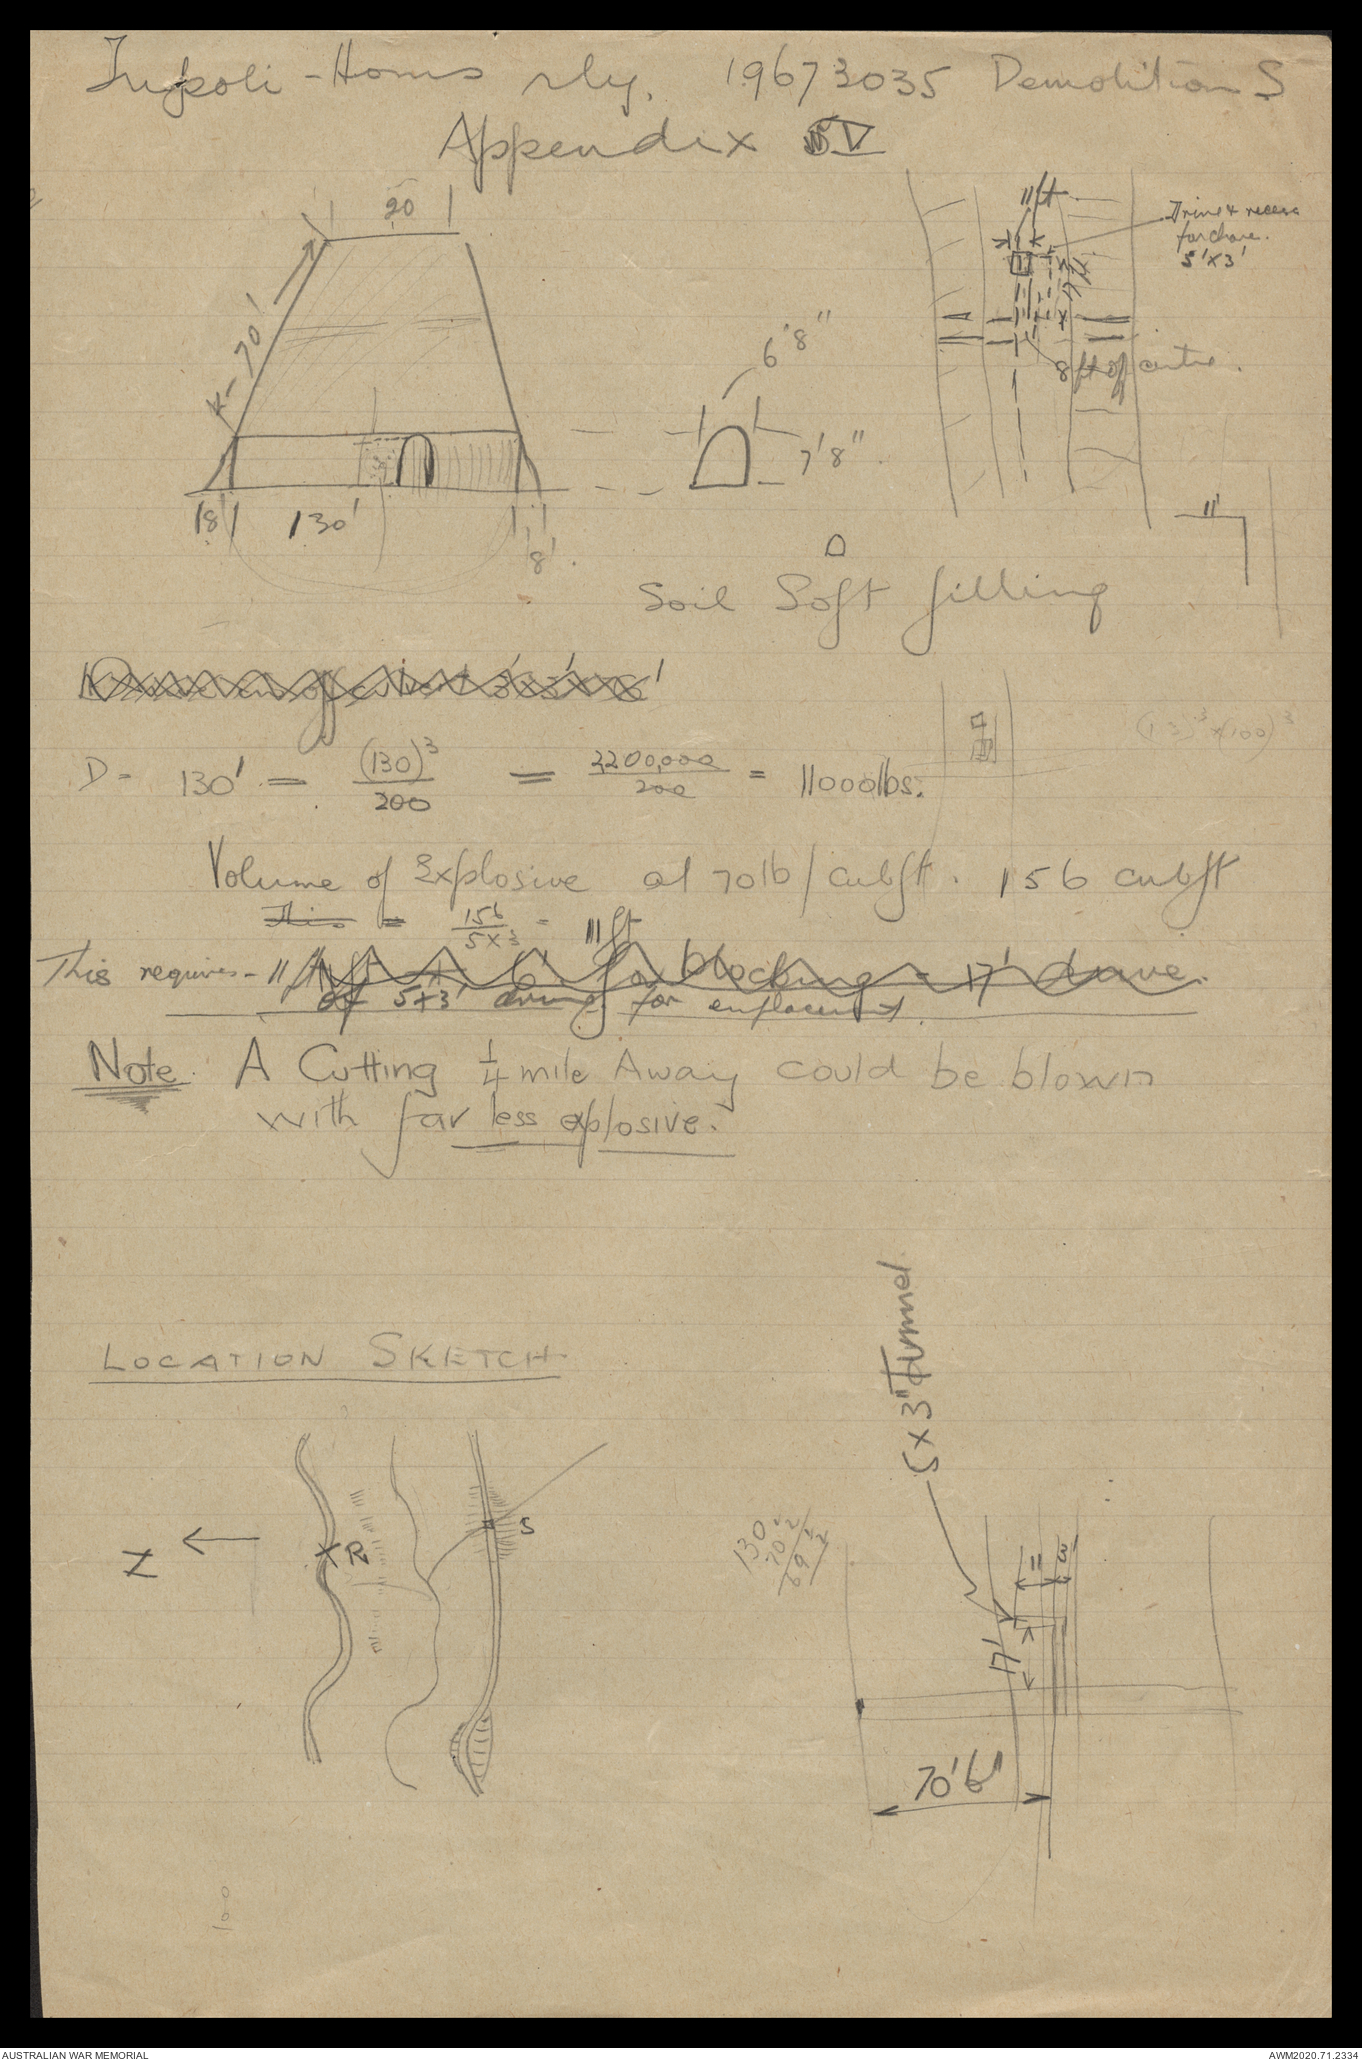 Tripoli - Homs rly. 19673035 Demolition S
Appendix V
20
11 ft
Drive & recess
for charge.
5' X 3'
70'
6' 8"
8 ft off centre.
7' 8"
8'
130'
8'
11'
Soil Soft filling
D = 130' = (130)³ / 200 = 2,200,000 / 200 = 11000lbs.
Volume of Explosive at 70lb/cubft. 156 cubft
This = 156 / 5 X 3 = 11 ft
This requires - 11 ft + 6' for blocking = 17' drive.
of 5 X 3' driving for emplacement.
Note. A Cutting 1/4 mile Away could be blown
with far less explosive.
LOCATION SKETCH
5 X 3" Tunnel
S
R
Z
130
11
3'
17'
70' 6"
100
AUSTRALIAN WAR MEMORIAL
AWM2020.71.2334